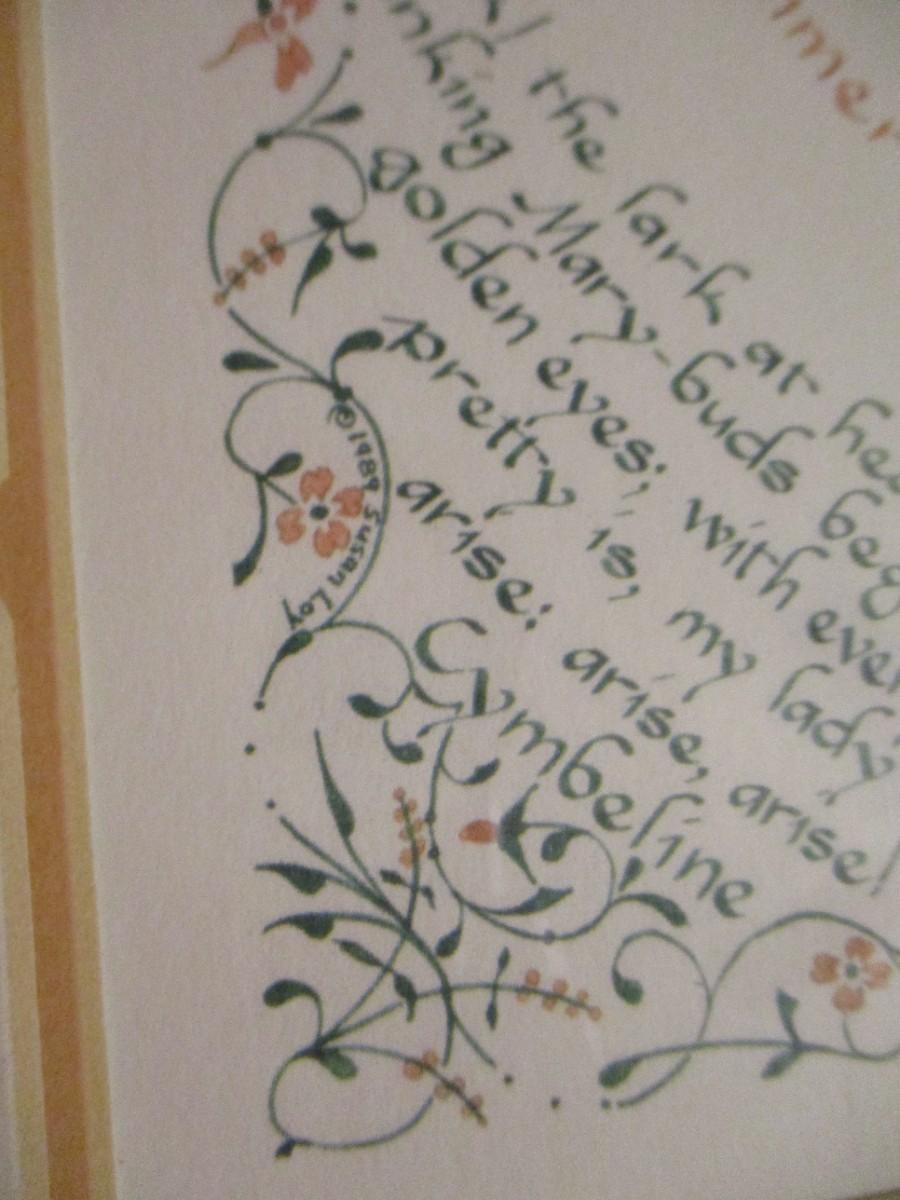 the lark at
Mary-buds
golden eyes; with
pretty is, my lady
arise: arise, arise!
Cymbeline
©1989 Susan Loy